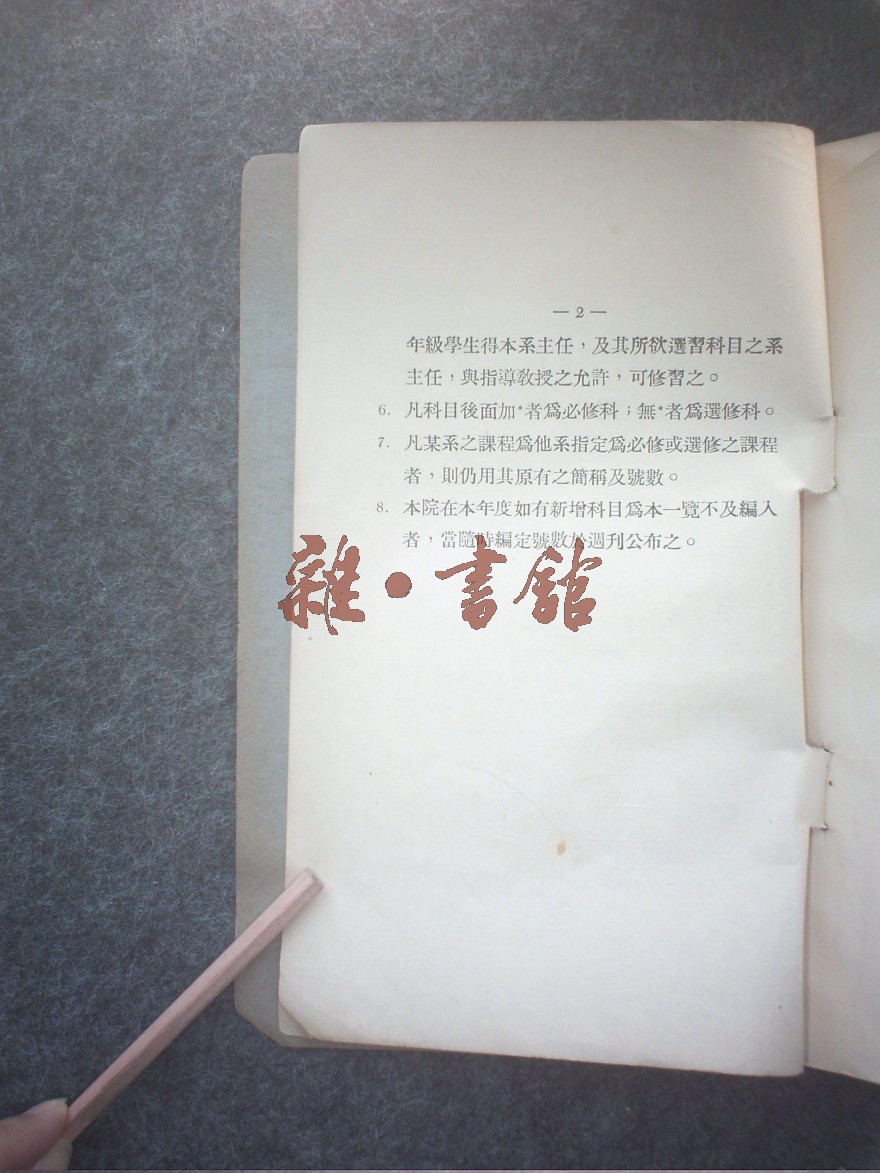 — 2 —
年級學生得本系主任，及其所欲選習科目之系
主任，與指導敎授之允許，可修習之。
6. 凡科目後面加*者爲必修科；無*者爲選修科。
7. 凡某系之課程爲他系指定爲必修或選修之課程
者，則仍用其原有之簡稱及號數。
8. 本院在本年度如有新增科目爲本一覽不及編入
者，當隨時編定號數於週刊公布之。
雜·書館